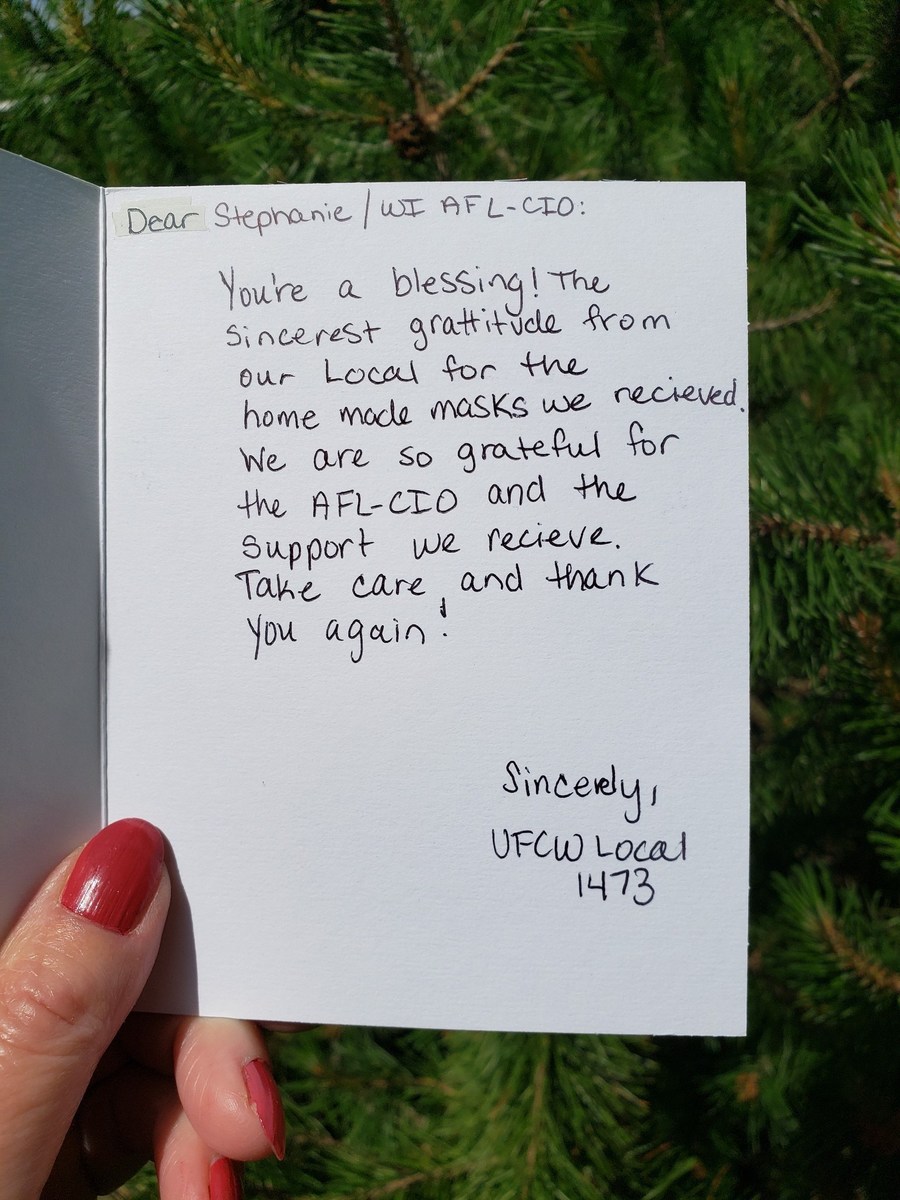 Dear Stephanie / WI AFL-CIO:
You're a blessing! The
sincerest grattitude from
our Local for the
home made masks we recieved.
We are so grateful for
the AFL-CIO and the
support we recieve.
Take care, and thank
you again!
Sincerely,
UFCW Local
1473